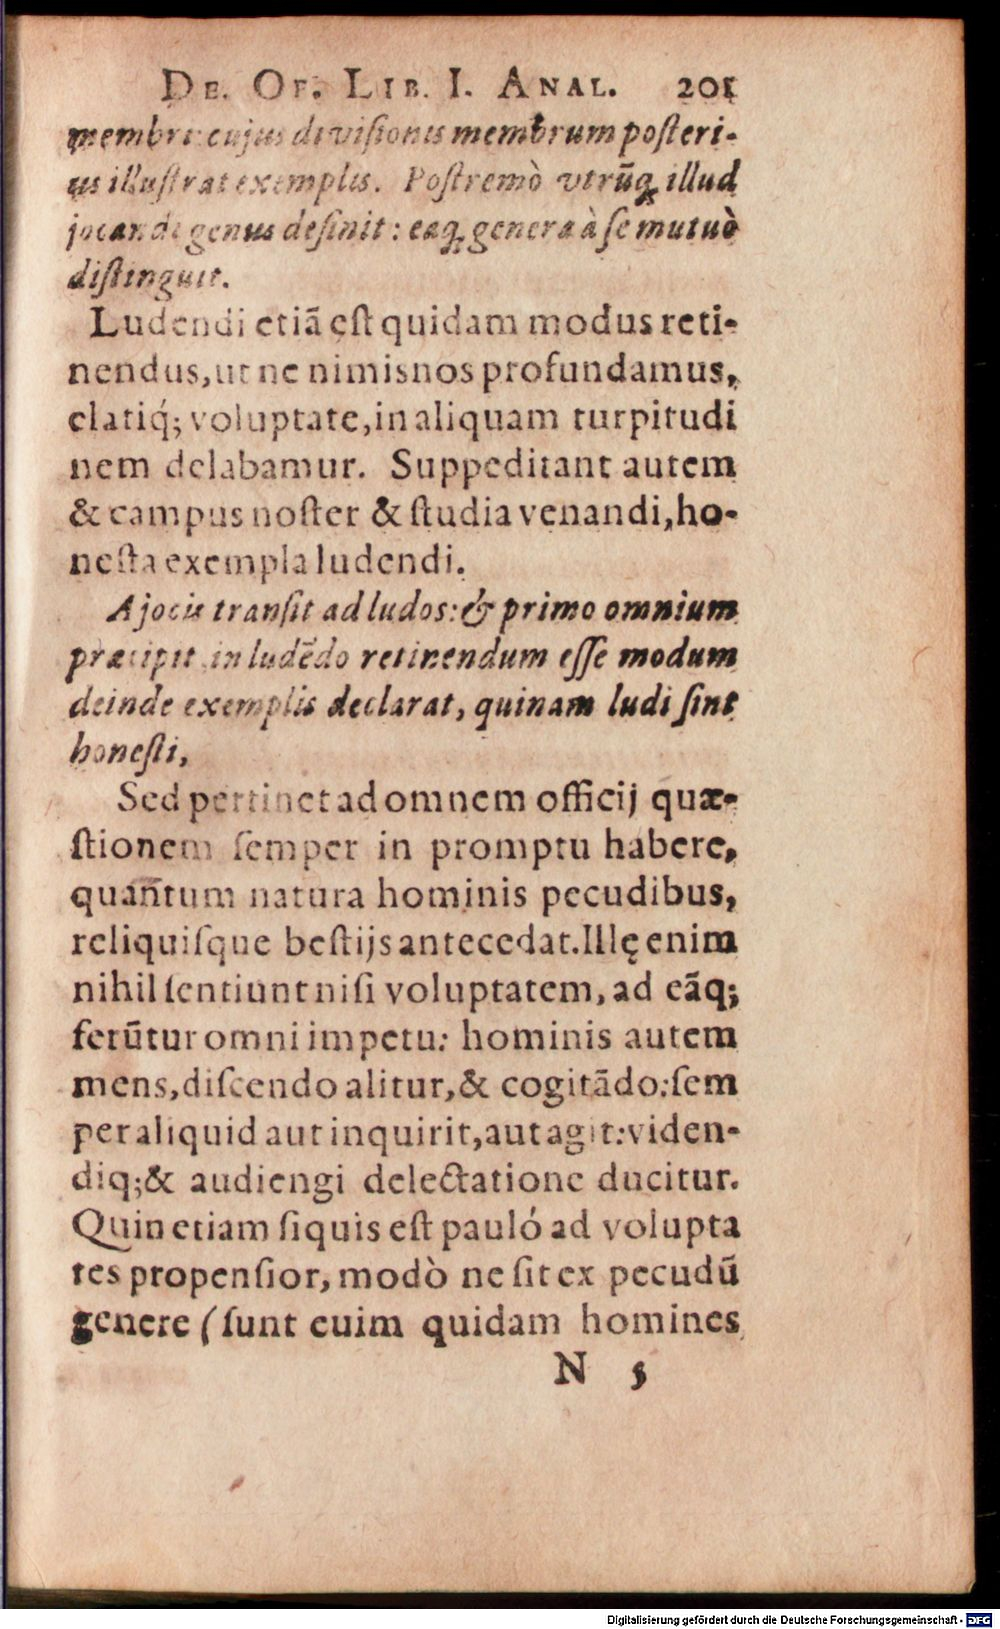 DE. OF. LIB. I. ANAL. 201
membri: cujus divisionis membrum posteri-
us illustrat exemplis. Postremò vtrūq; illud
jocandi genus definit: eaq; genera à se mutuò
distinguit.
Ludendi etiā est quidam modus reti-
nendus, ut ne nimis nos profundamus,
elatiq́; voluptate, in aliquam turpitudi
nem delabamur. Suppeditant autem
& campus noster & studia venandi, ho-
nesta exempla ludendi.
A jocis transit ad ludos: & primo omnium
præcipit in ludēdo retinendum esse modum
deinde exemplis declarat, quinam ludi sint
honesti,
Sed pertinet ad omnem officij quæ-
stionem semper in promptu habere,
quañtum natura hominis pecudibus,
reliquisque bestijs antecedat. Illę enim
nihil sentiunt nisi voluptatem, ad eãq;
ferūtur omni impetu: hominis autem
mens, discendo alitur, & cogitãdo: sem
per aliquid aut inquirit, aut agit: viden-
diq; & audiengi delectatione ducitur.
Quin etiam siquis est pauló ad volupta
tes propensior, modò ne sit ex pecudū
genere (sunt euim quidam homines
N 5
Digitalisierung gefördert durch die Deutsche Forschungsgemeinschaft - DFG